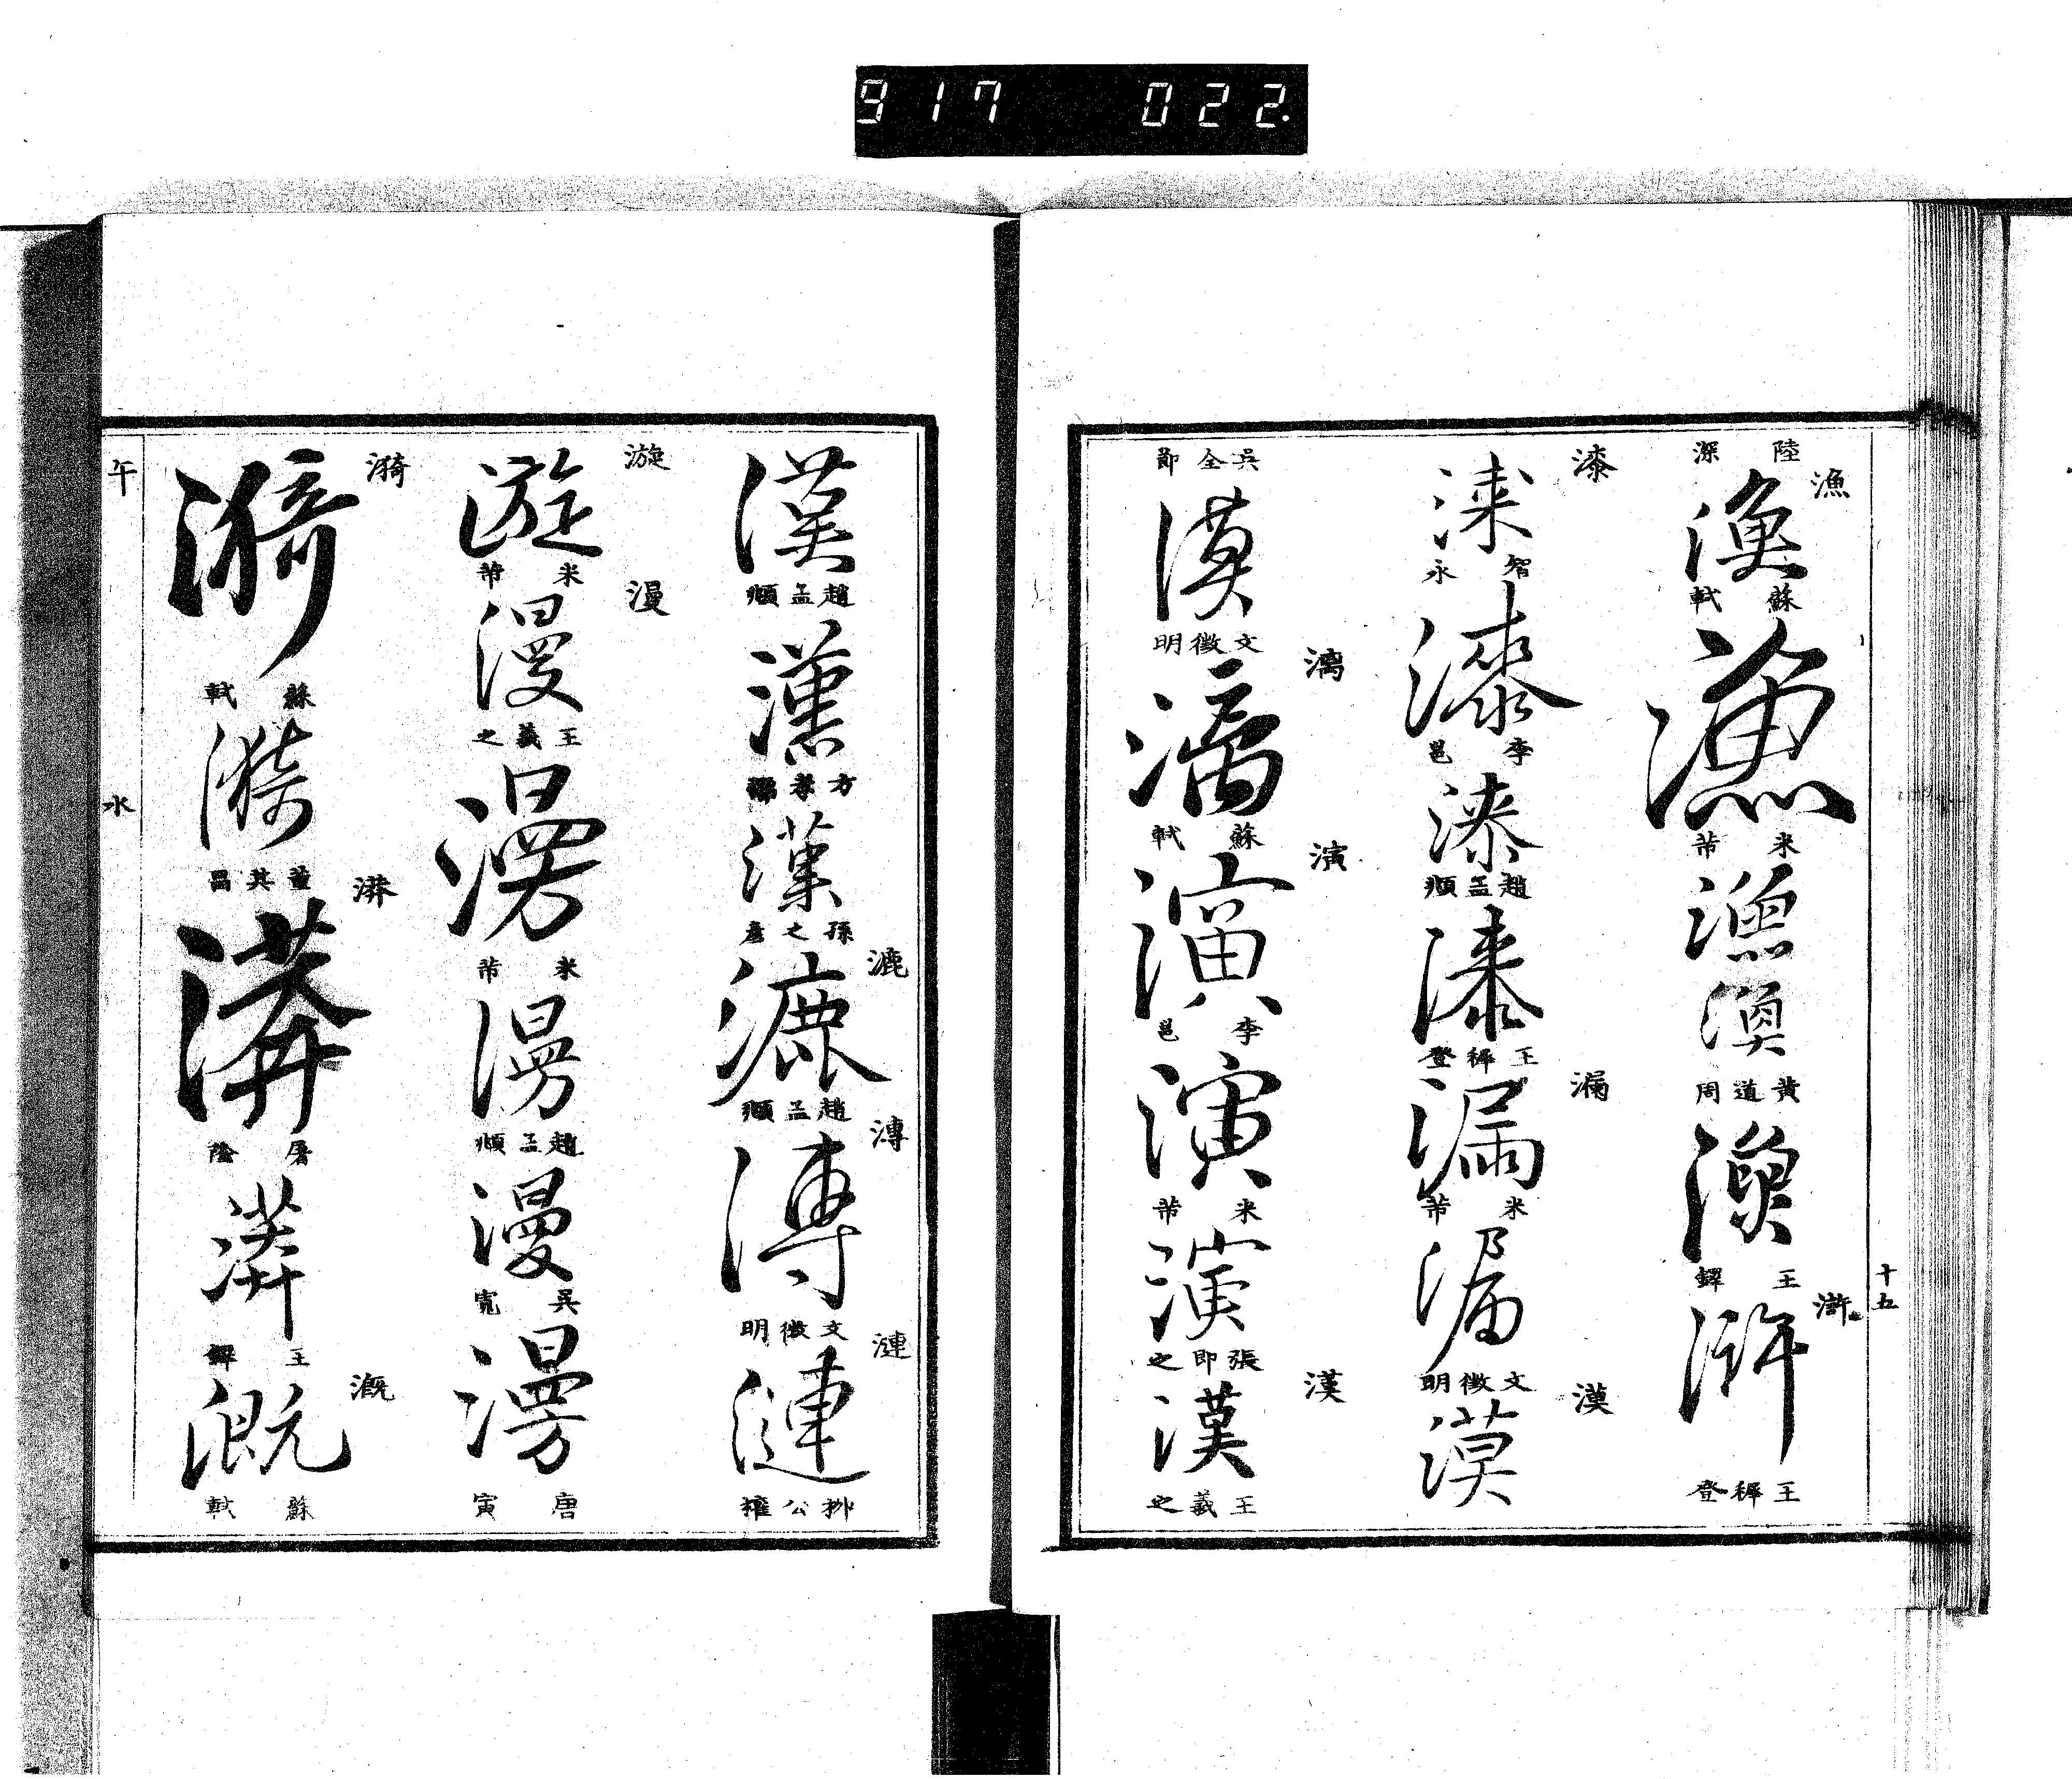 917 022.
十五
漁
陸深
漁
蘇軾
漁
米芾
漁
漁
黃道周
漁
王鐸
滸
滸
王穉登
漆
漆
智永
漆
李邕
漆
趙孟頫
漆
王穉登
漏
漏
米芾
漏
文徵明
漠
漠
吳全節
漠
文徵明
漓
漓
蘇軾
演
演
李邕
演
米芾
演
張即之
漢
漢
王羲之
漢
趙孟頫
漢
方孝孺
漢
孫之彥
漉
漉
趙孟頫
漙
漙
文徵明
漣
漣
柳公權
漩
漩
米芾
漫
漫
王羲之
漫
米芾
漫
趙孟頫
漫
吳寬
漫
唐寅
漪
漪
蘇軾
漪
董其昌
漭
漭
屠隆
漭
王鐸
漑
漑
蘇軾
午
水